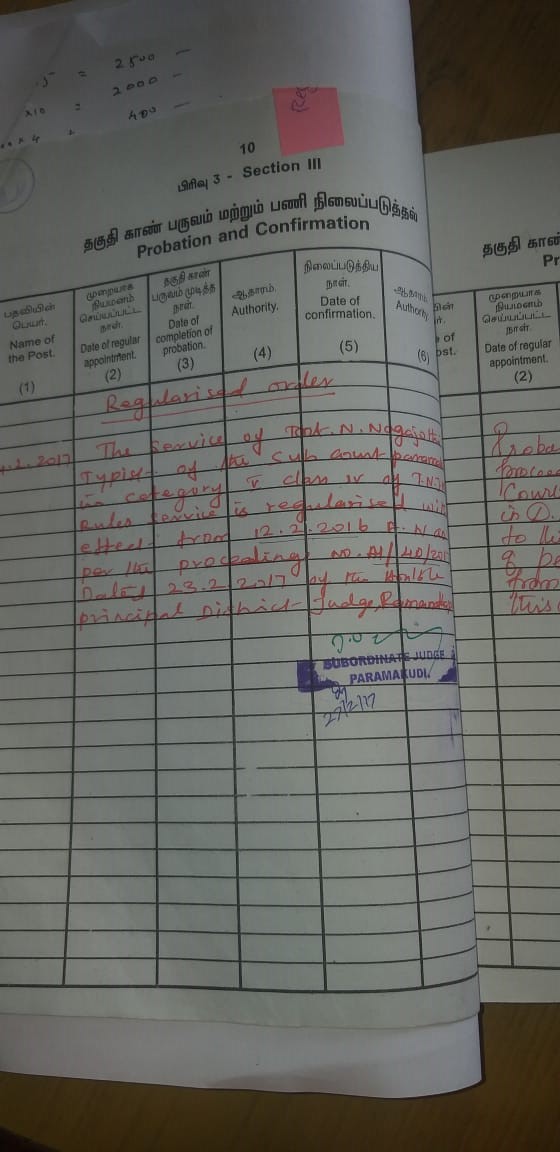 = 2500 —
×10 = 2000 —
× 4 400 —
10
பிரிவு 3 - Section III
தகுதி காண் பருவம் மற்றும் பணி நிலைப்படுத்தல்
Probation and Confirmation
பதவியின் பெயர்.
Name of the Post.
(1)
முறையாக நியமனம் செய்யப்பட்ட நாள்.
Date of regular appointment.
(2)
தகுதி காண் பருவம் முடித்த நாள்.
Date of completion of probation.
(3)
ஆதாரம்.
Authority.
(4)
நிலைப்படுத்திய நாள்.
Date of confirmation.
(5)
ஆதாரம்.
Authority
(6)
Regularised order
.2.2017 The Service of Tmt. N. Nagajothi
Typist of the Sub Court parama
in category V class IV of T.N.
Rules Service is regularised wi
effect from 12.2.2016 F.N as
per the proceeding No. A1/40/201
Dated 23.2.2017 by the
principal District Judge, Ramanatha
SUBORDINATE JUDGE
PARAMAKUDI.
27/2/17
தகுதி காண்
Pr
முறையாக நியமனம் செய்யப்பட்ட நாள்.
Date of regular appointment.
(2)
Proba
proceed
Court
in
to the
from
this